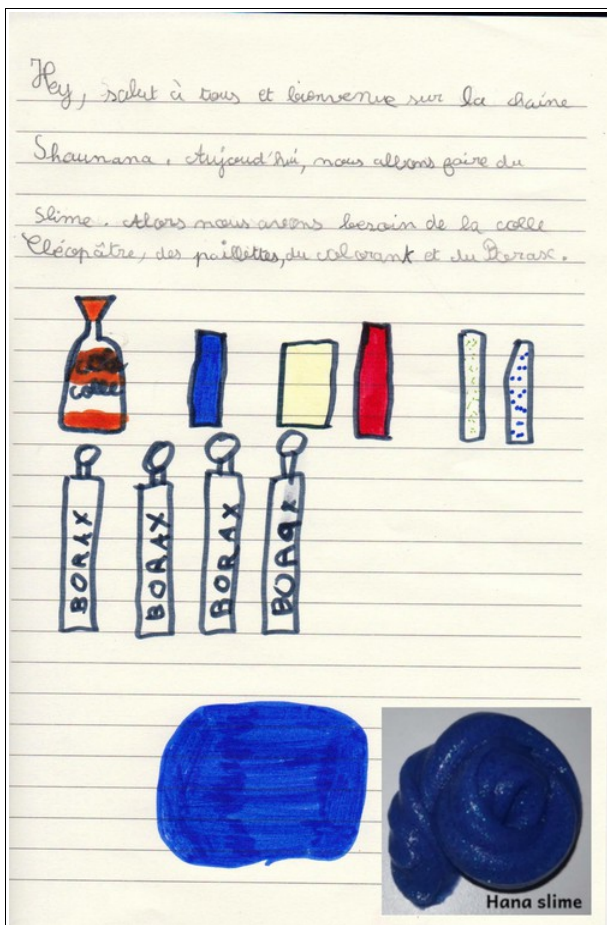 Hey, salut à tous et bienvenue sur la chaine
Shaunana. Aujourd'hui, nous allons faire du
Slime. Alors nous avons besoin de la colle
Cléopâtre, des paillettes, du colorant et du Borax.
colle
BORAX
BORAX
BORAX
BORAX
Hana slime